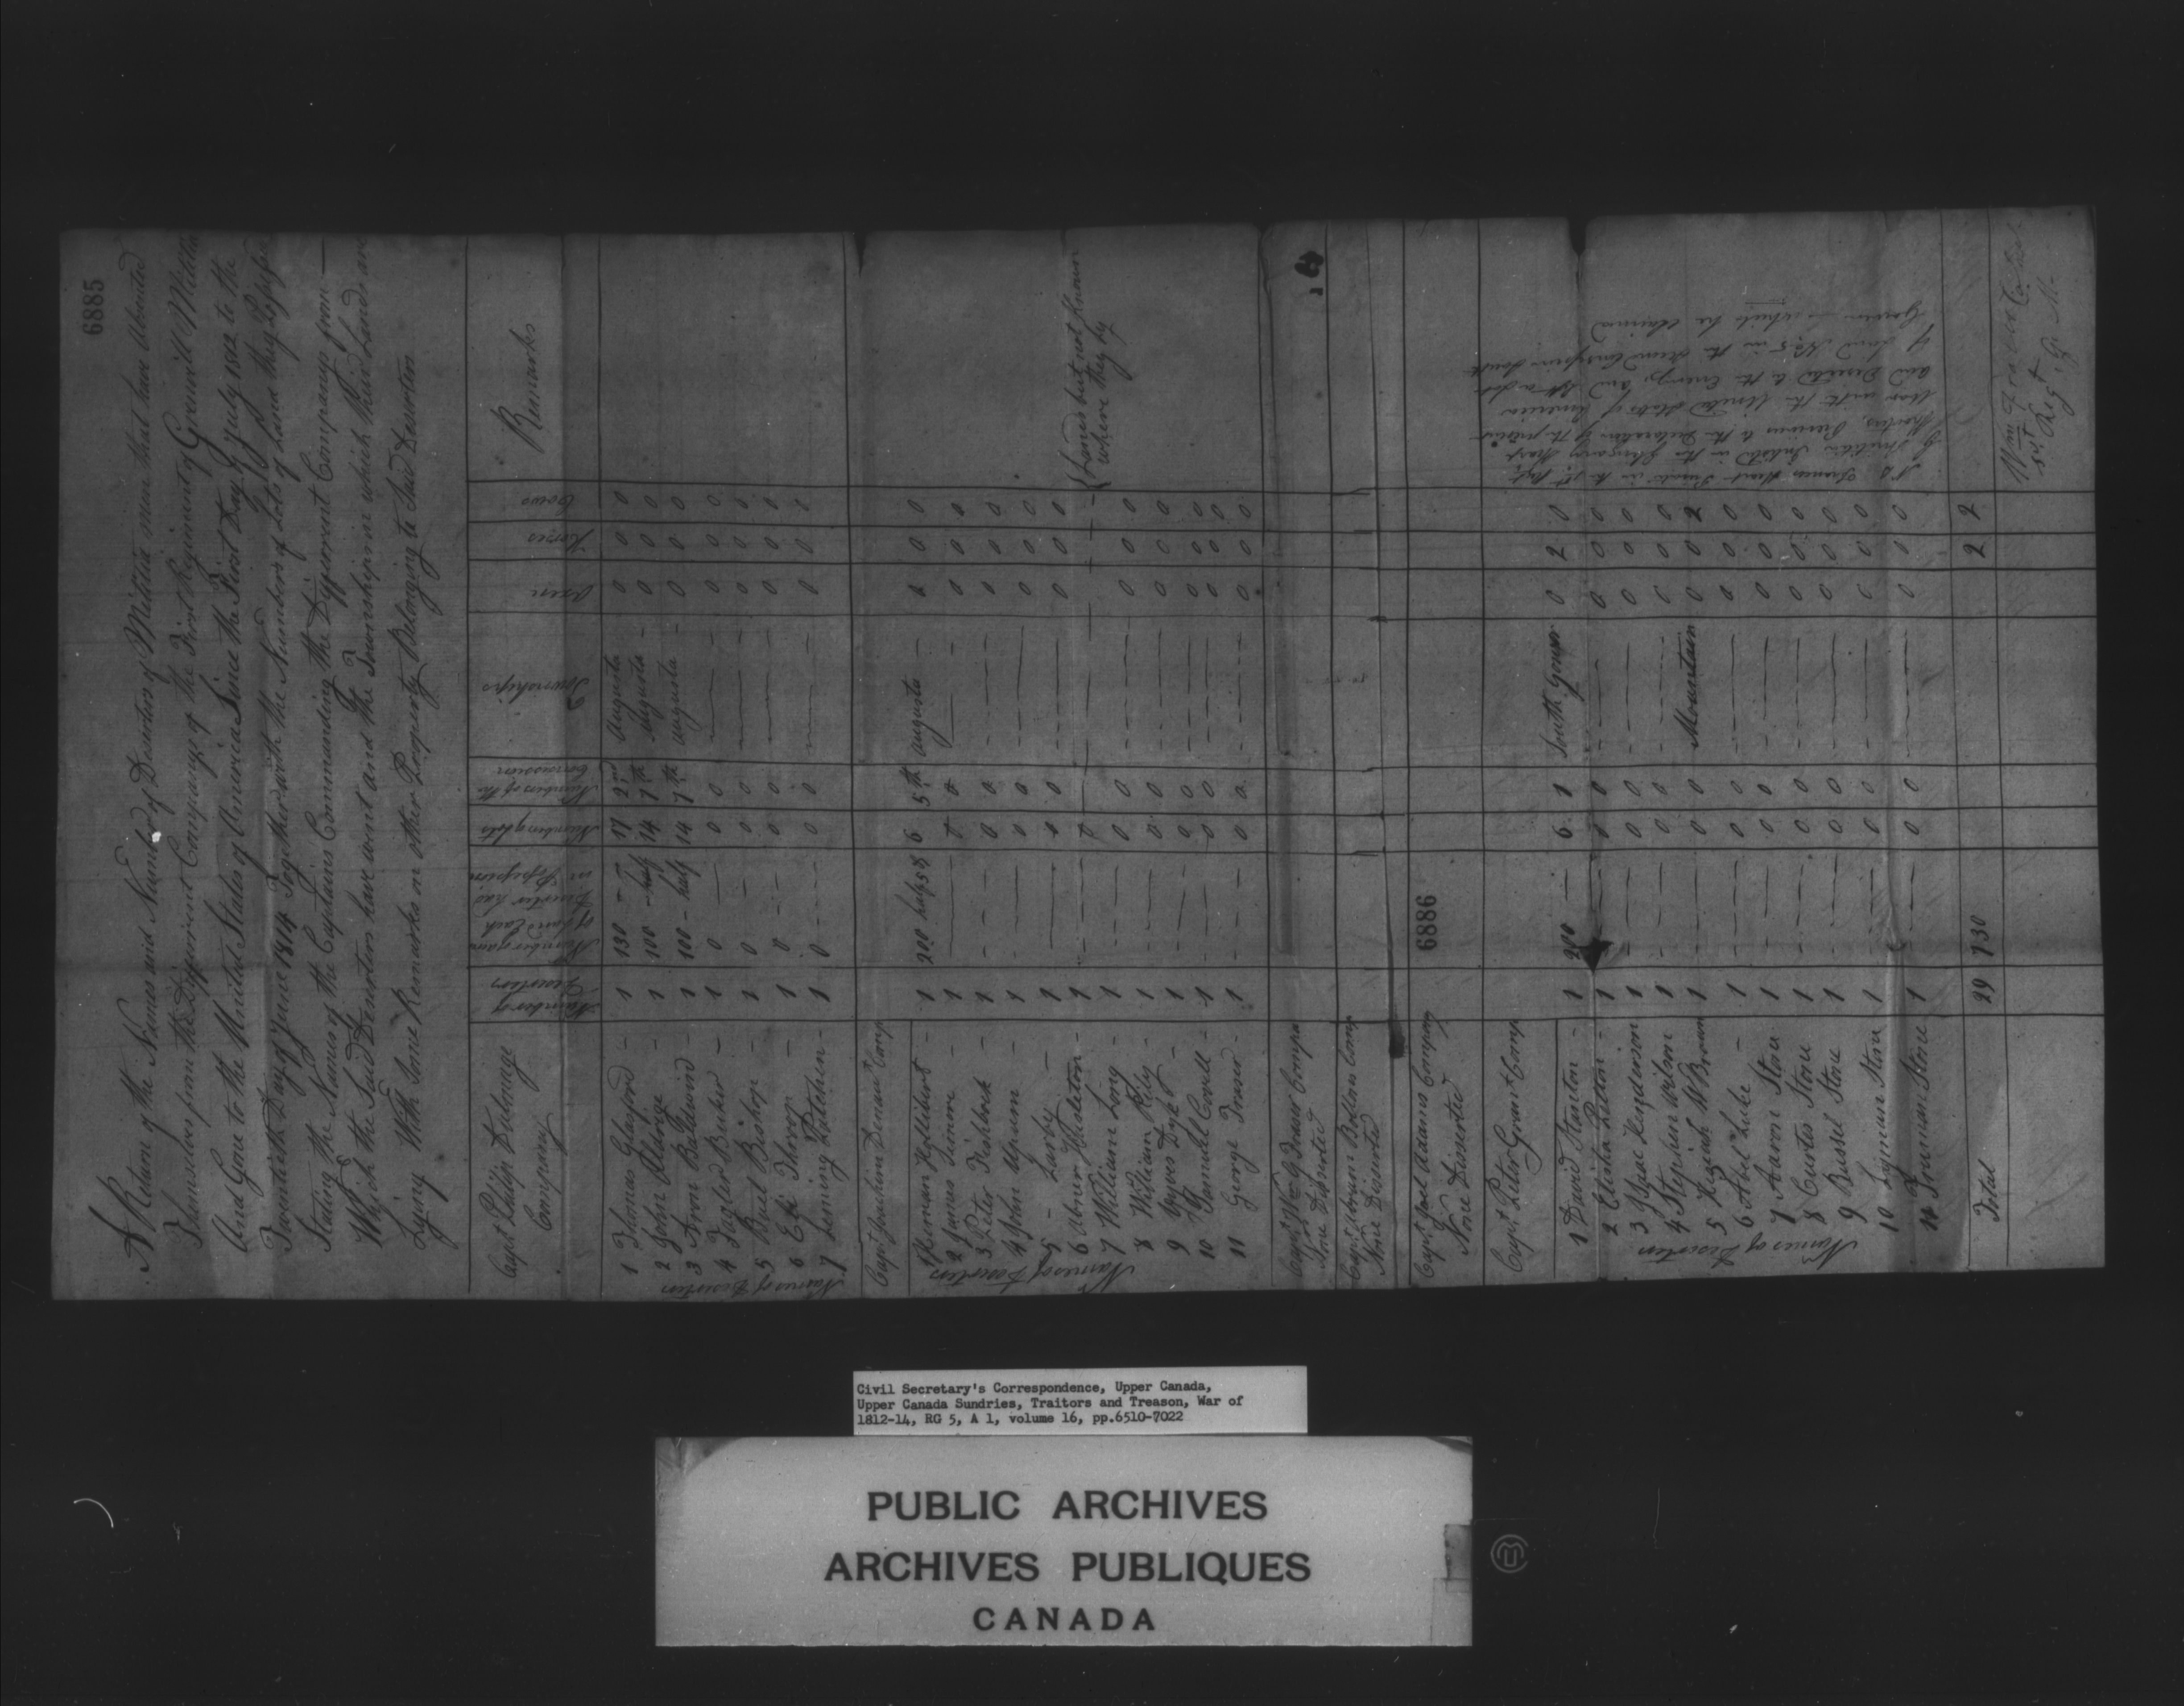 6885
A Return of the Names and Number of Deserters of Militia men that have Absented
Themselves from the Different Companys of the First Regiment of Grenvill Militia
And Gone to the United States of America Since the First Day of July 1812 to the
Twentieth Day of June 1814 Together with the Numbers of Lots of Land they Possessed
Stating the Names of the Captains Commanding the Different Companys from
Which the Said Deserters have went and the Township in which their Lands are
Lying With Some Remarks on other Property Belonging to Said Deserters
Capt Philip Dulmage Company
Number of Deserters
Number of acres of Land Each Deserter has in Possession
Number of Lots
Numbers of the Concession
Townships
Oxen
Horses
Cows
Remarks
Names of Deserters
1 Thomas Glasford – 1 130 – – 17 2nd Augusta 0 0 0
2 John Aldorge – 1 100 – half 14 7th Augusta – 0 0 0
3 Aron Baldwind – 1 100 – half 14 7th Augusta – 0 0 0
4 Tayler Beeker – 1 0 0 0 0 0 0
5 Buel Bishop – 1 0 0 0 0 0 0
6 Eft Throop – 1 0 0 0 0 0 0
7 Leming Ketchen – 1 0 0 0 0 0 0
Capt Joachim Denaut Comp
Names of Deserters
1 Heman Hollibert – 1 200 half 58 6 5th Augusta – 0 0 0
2 James Simore – 1 0 0 0 0 0
3 Peter Fishlock – 1 0 0 0 0 0
4 John Upum 1 0 0 0 0 0
5 – Larby – 1 0 0 0 0 0
6 Abner Heleton – 1 0 { Landes but not Known
where they by
7 William Long – 1 0 0 0 0 0
8 William Kelly – 1 0 0 0 0 0
9 Moses Dyke – 1 0 0 0 0 0
10 Samuel Covill – 1 0 0 0 0 0
11 George Fraser – 1 0 0 0 0 0
Capt Wm G Fraser Compa
None Disserted
Capt Abram Bolton Comp
None Disserted
6886
Capt Joel Adams Company
None Disserted
Capt Peter Grant Comp
Names of Deserters
1 David Stanton – 1 200 – 6 1 South Gower 0 2 0
2 Elisha Retton – 1 0 0 0 0 0
3 Isaac Henderson 1 0 0 0 0 0
4 Stephen Wilson 1 0 0 0 0 0
5 Heziah W Brown 1 0 0 Mountain 0 0 2
6 Abel Luke – 1 0 0 0 0 0
7 Aaron Stone 1 0 0 0 0 0
8 Curtes Stone 1 0 0 0 0 0
9 Russel Stone 1 0 0 0 0 0
10 Lyman Stone 1 0 0 0 0 0
11 Truman Stone 1 0 0 0 0 0
in the 1st Regt
of Militia in the
Previous to the Declaration of the present
War with the United States of America
and Deserted to the Enemy, and left a Lot
of Land No 5 in the Township South
Gower – which he claimed
Total 29 730 2 2
Wm Fraser Col
1st Regt G. M.
Civil Secretary's Correspondence, Upper Canada,
Upper Canada Sundries, Traitors and Treason, War of
1812-14, RG 5, A 1, volume 16, pp.6510-7022
PUBLIC ARCHIVES
ARCHIVES PUBLIQUES
CANADA